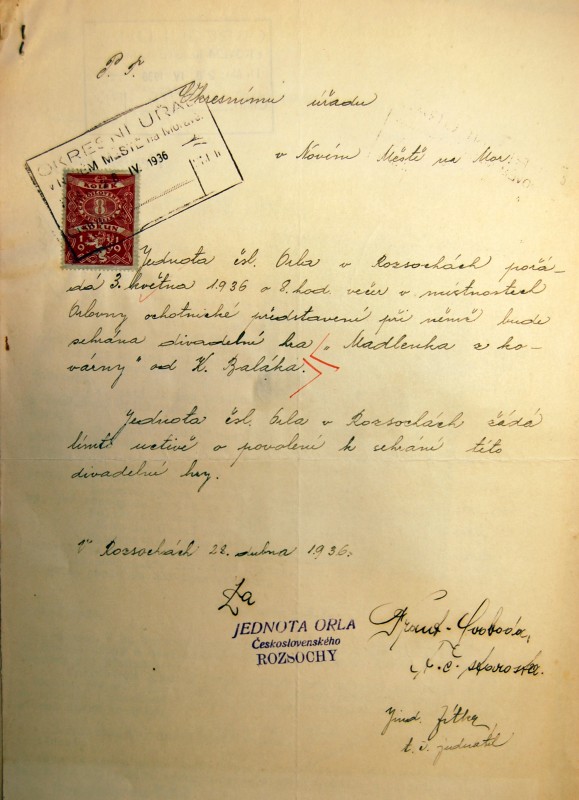 P. T.
Okresnímu úřadu
v Novém Městě na Mor.
OKRESNÍ ÚŘAD
v NOVÉM MĚSTĚ na Moravě
IV. 1936
KOLEK
8
KORUN
Jednota čsl. Orla v Rozsochách pořá-
dá 3. května 1936 o 8. hod. večer v místnostech
Orlovny ochotnické představení při němž bude
sehrána divadelní hra „Madlenka z ko-
várny" od K. Baláka.
Jednota čsl. Orla v Rozsochách žádá
tímto uctivě o povolení k sehrání této
divadelné hry.
V Rozsochách 22. dubna 1936.
Za
JEDNOTA ORLA
Československého
ROZSOCHY
Frant. Svoboda,
t. č. starosta.
Jind.
t. č. jednatel